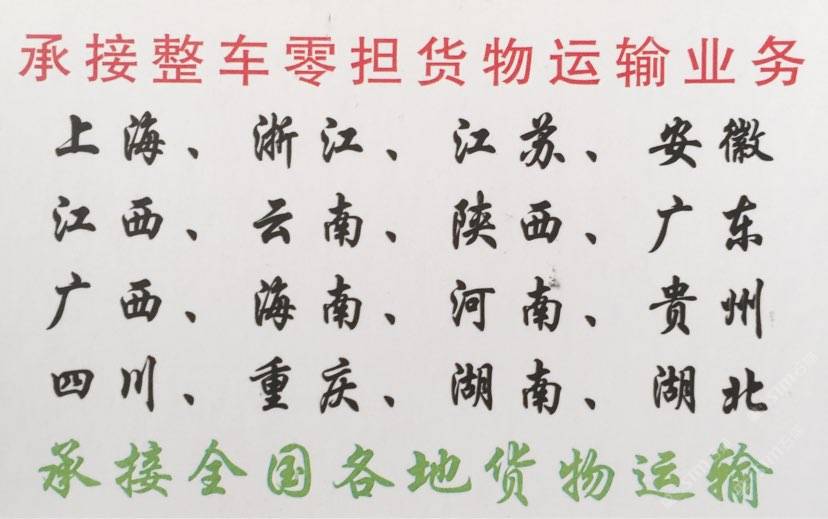 承接整车零担货物运输业务
上海、浙江、江苏、安徽
江西、云南、陕西、广东
广西、海南、河南、贵州
四川、重庆、湖南、湖北
承接全国各地货物运输